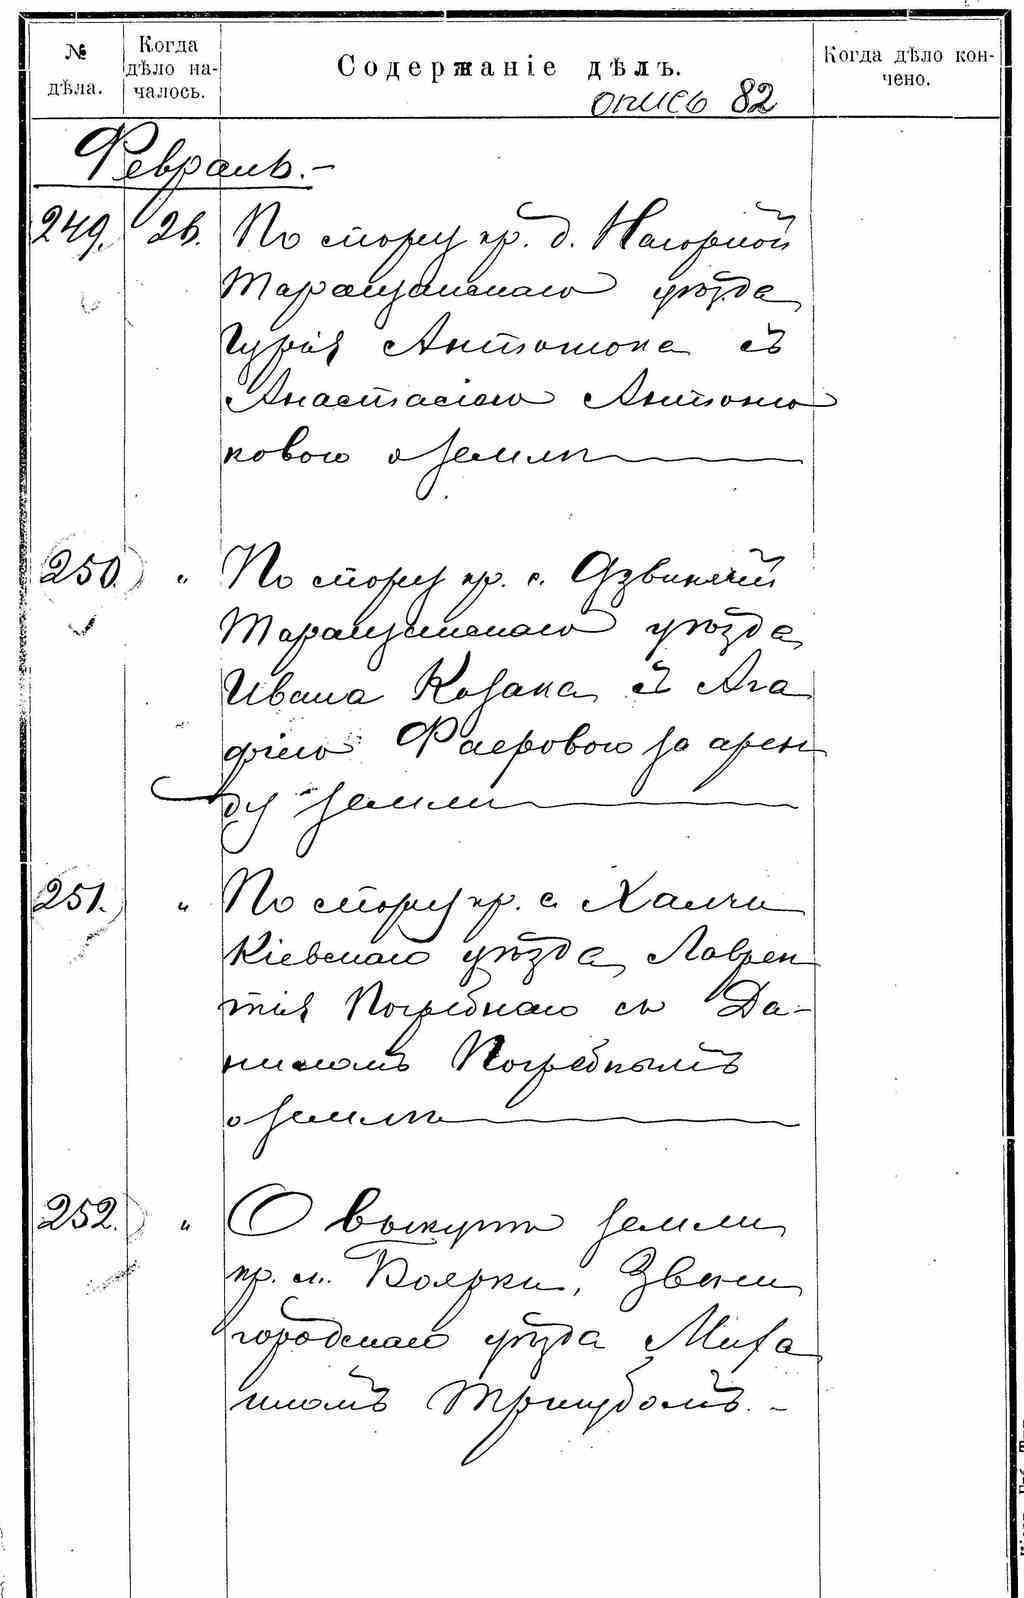 № дѣла.
Когда дѣло на-
чалось.
Содержаніе дѣлъ.
Когда дѣло кон-
чено.
опись 82
Февраль.-
249. 26. По спору кр. д. Нагорной
Таращанскаго уѣзда
Гурія Антонюка съ
Анастасіею Антоню
ковою о землѣ
250. " По спору кр. с. Дзвинячей
Таращанскаго уѣзда
Ивана Козака съ Ага
фіею Фаеровою за арен
ду земли
251. " По спору кр. с. Халчи
Кіевскаго уѣзда Лаврен
тія Погребнаго съ Да-
ниломъ Погребнымъ
о землѣ
252. " О выкупѣ земли
кр. м. Боярки, Звени
городскаго уѣзда Миха
иломъ Трицубомъ.-